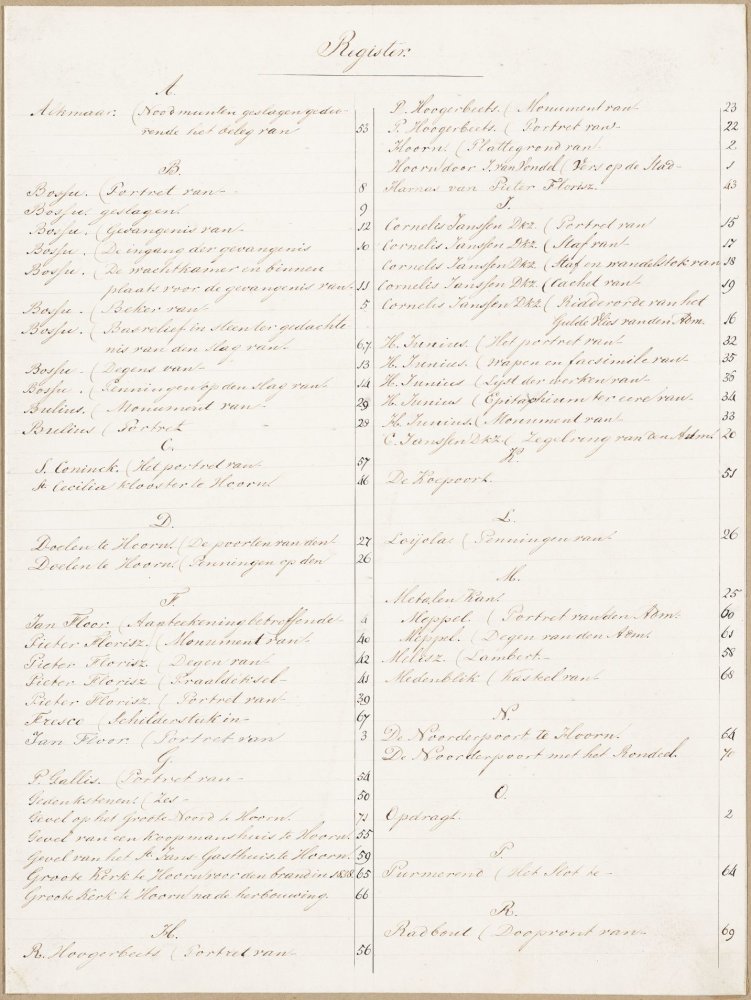 Register.
A
Alkmaar. (Noodmunten geslagen gedu-
rende het beleg van 53
B.
Bossu. (Portret van- 8
Bossu. geslagen. 9
Bossu. (Gevangenis van 12
Bossu. (De ingang der gevangenis 10
Bossu. (De wachtkamer en binnen
plaats voor de gevangenis van 11
Bossu. (Beker van 5
Bossu. (Basrelief in steen ter gedachte
nis van den slag van 67
Bossu. (Degens van 13
Bossu. (Penningen op den slag van 14
Bulius. (Monument van 29
Bulius (Portret 28
C.
S. Coninck. (Het portret van 57
St. Cecilia klooster te Hoorn 46
D.
Doelen te Hoorn. (De poorten van den 27
Doelen te Hoorn. (Penningen op den 26
F.
Jan Floor (Aanteekening betreffende 4
Pieter Florisz. (Monument van 40
Pieter Florisz. (Degen van 42
Pieter Florisz (Praaldeksel- 41
Pieter Florisz. (Portret van 39
Fresco (Schilderstuk in- 67
Jan Floor. (Portret van 3
G.
P. Gallis. (Portret van- 54
Gedenkstenen. (Zes- 50
Gevel op het Groote Noord te Hoorn. 71
Gevel van een koopmanshuis te Hoorn. 55
Gevel van het St. Jans Gasthuis te Hoorn. 59
Groote Kerk te Hoorn voor den brand in 1838 65
Groote Kerk te Hoorn na de herbouwing. 66
H.
R. Hoogerbeets (Portret van- 56
P. Hoogerbeets. (Monument van 23
P. Hoogerbeets. (Portret van- 22
Hoorn. (Plattegrond van 2
Hoorn door J. van Vondel (Vers op de Stad- 1
Harnas van Pieter Florisz. 43
J.
Cornelis Janssen Dkz. (Portret van 15
Cornelis Janssen Dkz. (Staf van 17
Cornelis Janssen Dkz. (Staf en wandelstok van 18
Cornelis Janssen Dkz. (Cachet van 19
Cornelis Janssen Dkz. (Ridderorde van het
Gulde Vlies van den Adm. 16
H. Junius. (Het portret van 32
H. Junius. (Wapen en facsimile van 35
H. Junius (Lijst der werken van 36
H. Junius (Epitaphium ter eere van 34
H. Junius. (Monument van 33
C. Janssen Dkz. (Zegelring van den Adm. 20
K.
De Koepoort. 51
L.
Loijola. (Penningen van 26
M.
Metalen Kan. 25
Meppel. (Portret van den Adm. 60
Meppel. (Degen van den Adm. 61
Meliesz. (Lambert- 58
Medenblik (Kasteel van 68
N.
De Noorderpoort te Hoorn. 64
De Noorderpoort met het Rondeel. 70
O.
Opdragt. 2
P.
Purmerend (Het Slot te- 64
R.
Radbout (Doopvont van- 69